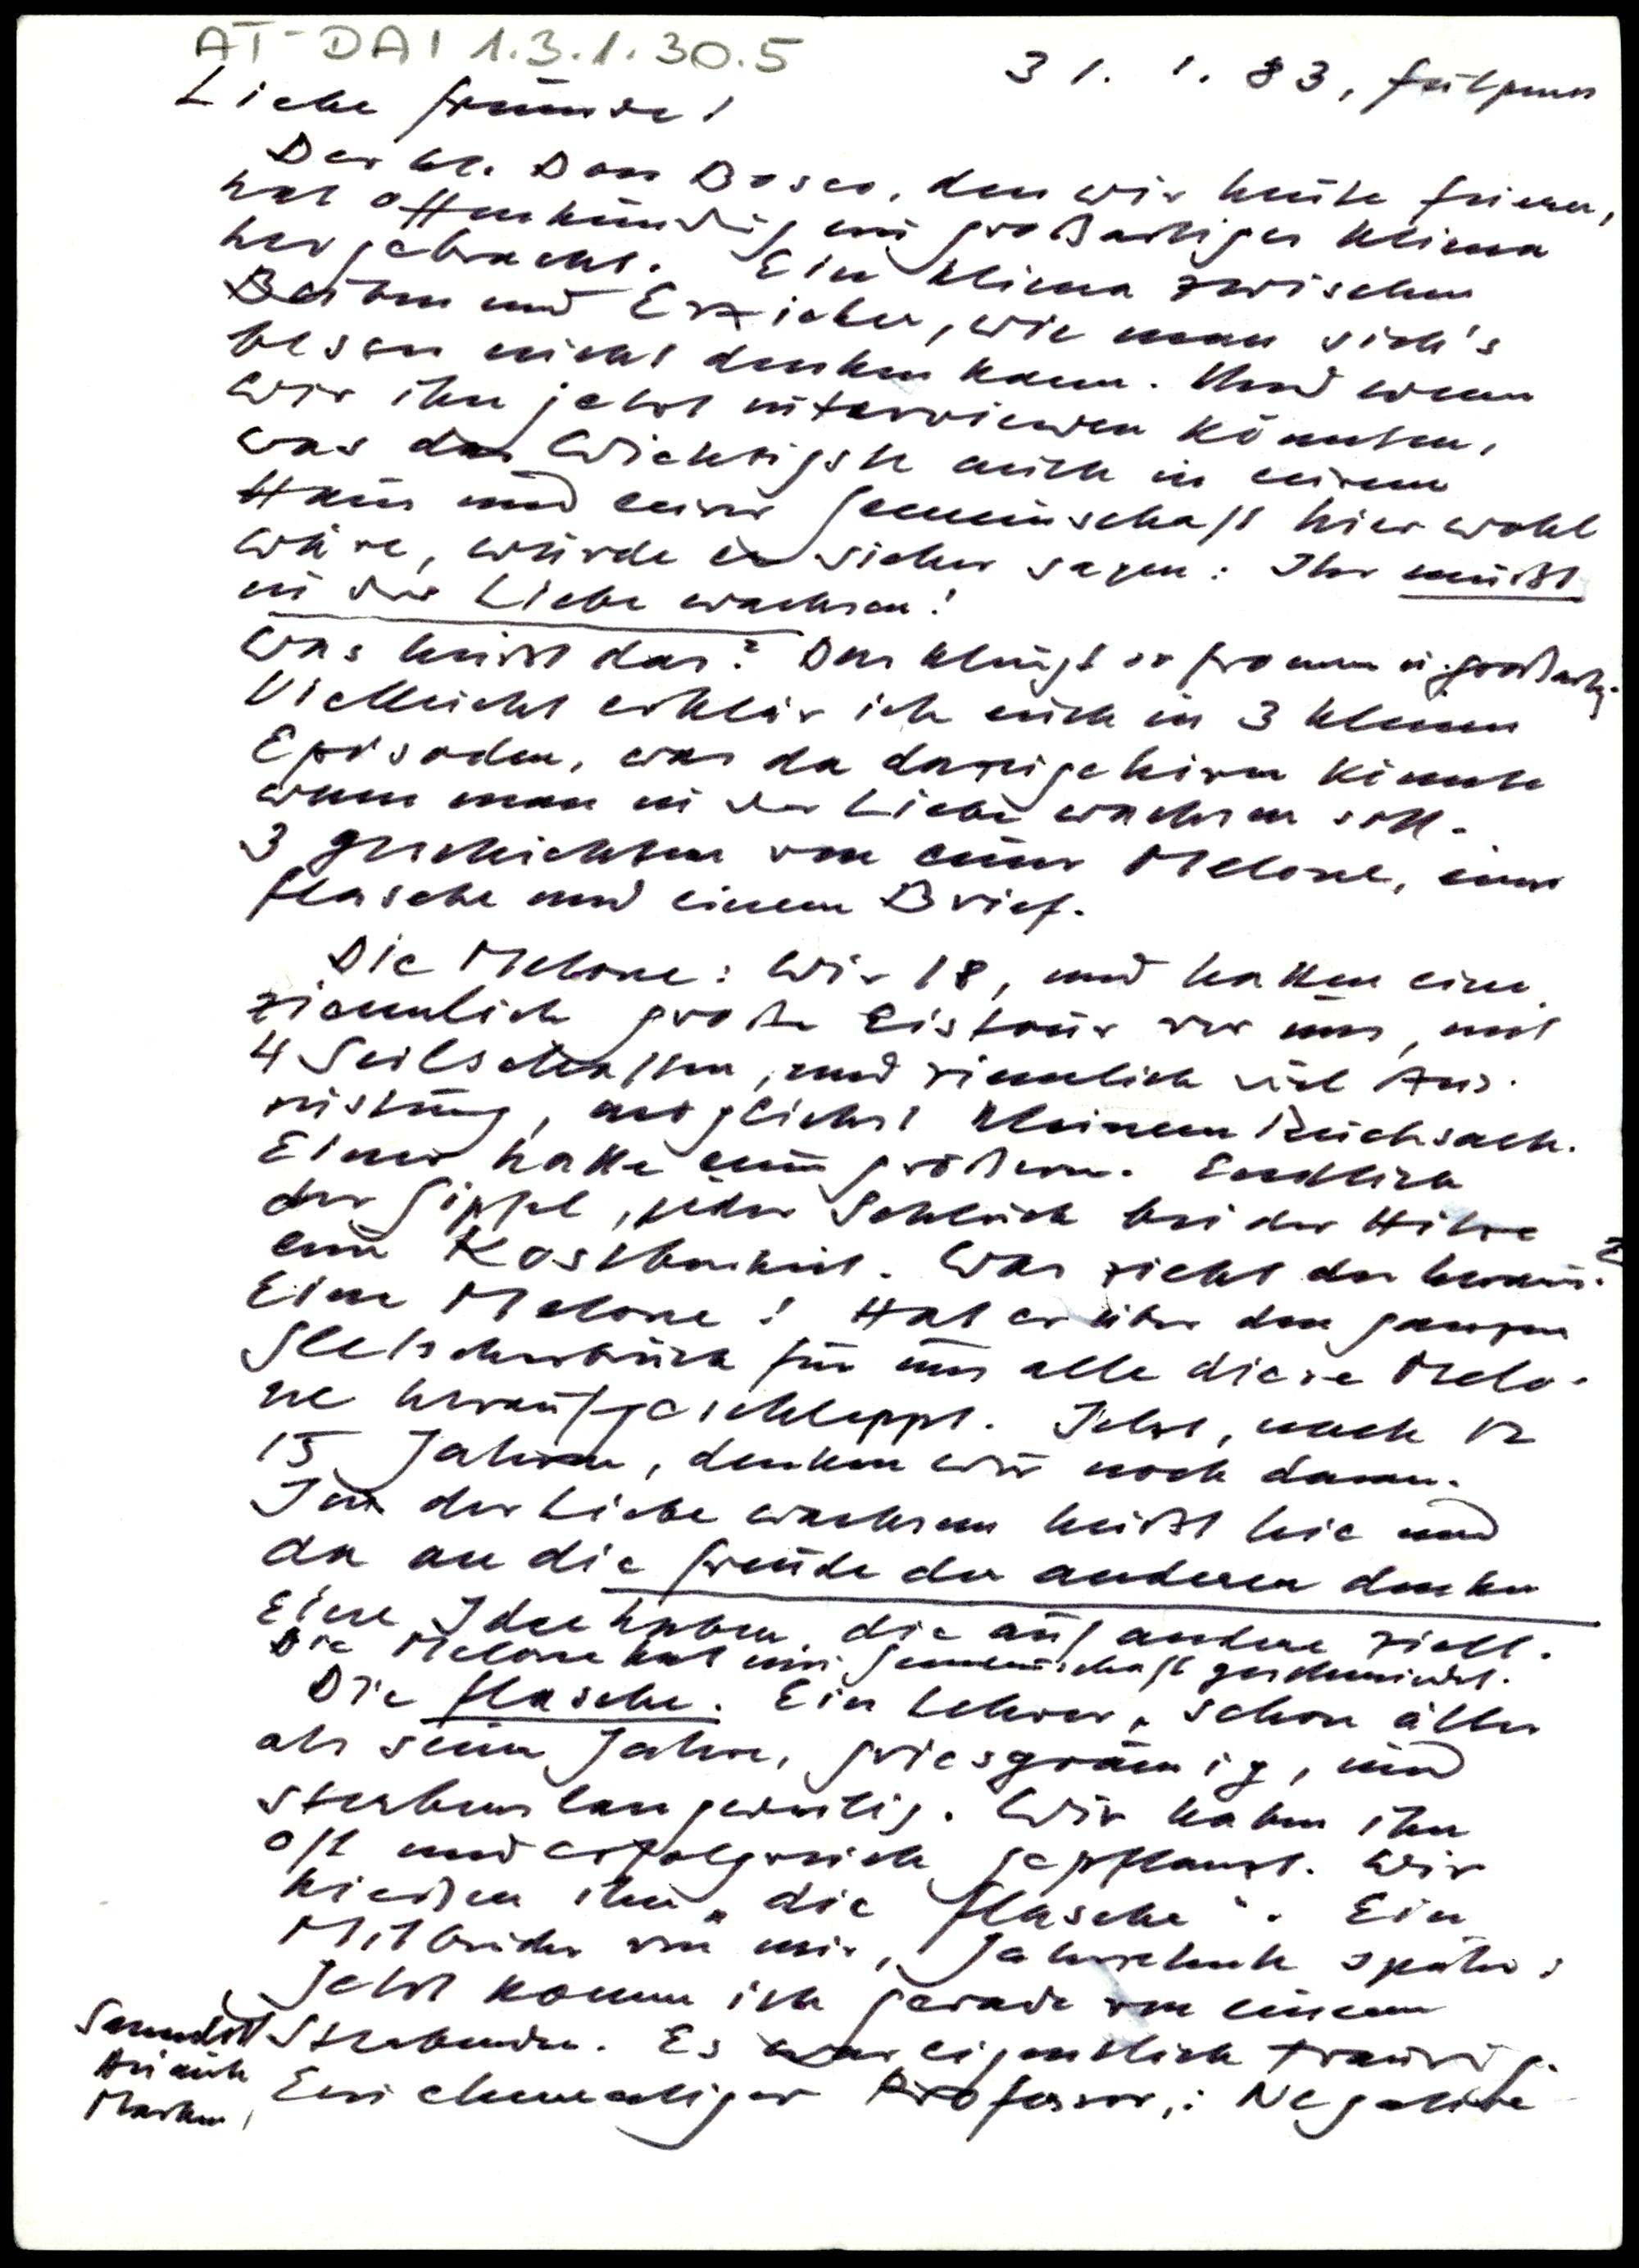 AT-DAI 1.3.1.30.5
31. 1. 83, Fulpmes
Liebe Freunde!
Der hl. Don Bosco, den wir heute feiern,
hat offenkundig ein großartiges Klima
hergebracht. Ein Klima zwischen
Buben und Erzieher, wie man sich's
besser nicht denken kann. Und wenn
wir ihn jetzt interviewen könnten,
was das Wichtigste auch in eurem
Haus und eurer Gemeinschaft hier wohl
wäre, würde er sicher sagen: Ihr müßt
in der Liebe wachsen!
Was heißt das? Das klingt so fromm u. großartig.
Vielleicht erklär ich euch in 3 kleinen
Episoden, was da dazugehören könnte
wenn man in der Liebe wachsen soll.
3 Geschichten von einer Melone, einer
Flasche und einem Brief.
Die Melone: Wir 18, und hatten eine
ziemlich große Eistour vor uns, mit
4 Seilschaften, und ziemlich viel Aus-
rüstung, möglichst kleinem Rucksack.
Einer hatte einen größeren. Endlich
der Gipfel, jeder Schluck bei der Hitze
eine Kostbarkeit. Was zieht der heraus?
Eine Melone! Hat er über den ganzen
Gletscherbruch für uns alle diese Melo-
ne heraufgeschleppt. Jetzt, nach 12
15 Jahren, denken wir noch daran.
In der Liebe wachsen heißt hie und
da an die Freude der anderen denken
Eine Idee haben, die auf andere zielt.
Die Melone hat eine Gemeinschaft geschmiedet.
Die Flasche. Ein Lehrer, schon älter
als seine Jahre, griesgrämig, und
sterbenslangweilig. Wir haben ihn
oft und erfolgreich gepflanzt. Wir
hießen ihn "die Flasche". Ein
Mitbruder von mir, Jahrzehnte später:
Jetzt komm ich gerade von einem
Sterbenden. Es war eigentlich traurig.
Ein ehemaliger Professor,: Negative